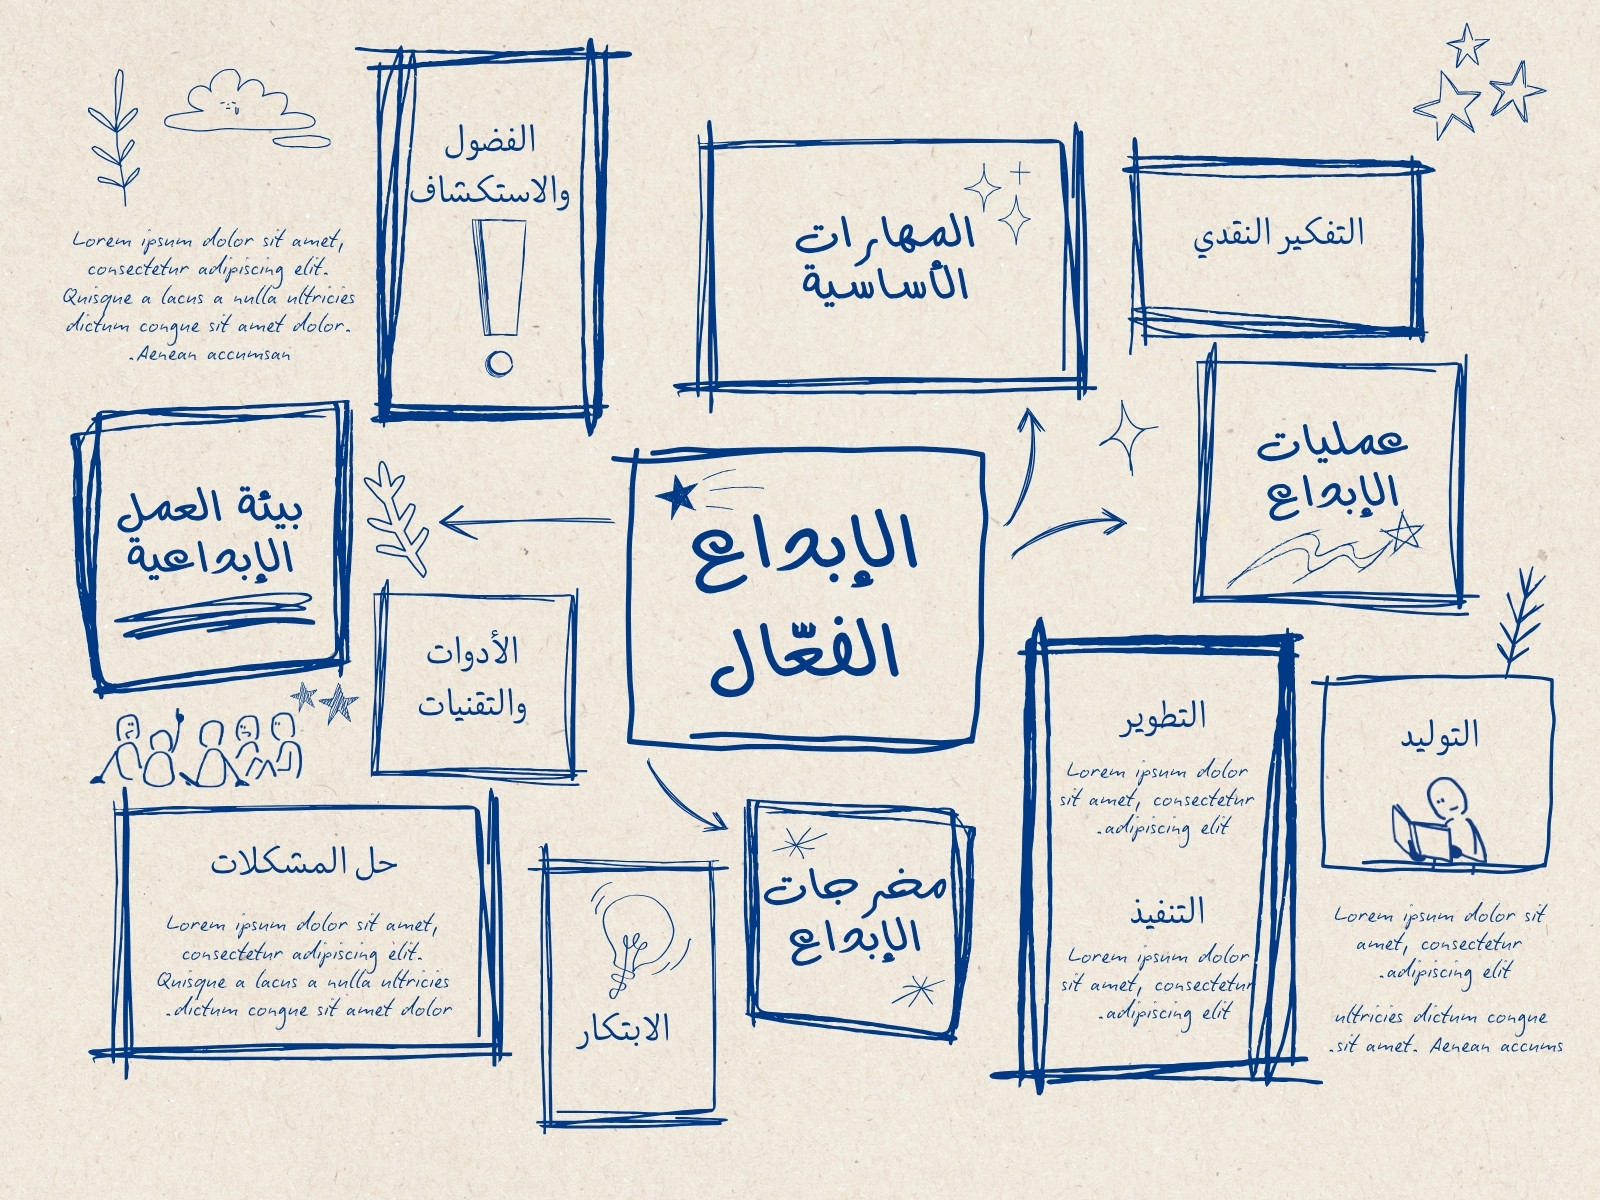 الفضول
والاستكشاف
المهارات
الأساسية
التفكير النقدي
Lorem ipsum dolor sit amet,
consectetur adipiscing elit.
Quisque a lacus a nulla ultricies
dictum congue sit amet dolor.
.Aenean accumsan
عمليات
الإبداع
الإبداع
الفعّال
بيئة العمل
الإبداعية
الأدوات
والتقنيات
التطوير
Lorem ipsum dolor
sit amet, consectetur
.adipiscing elit
التنفيذ
Lorem ipsum dolor
sit amet, consectetur
.adipiscing elit
التوليد
Lorem ipsum dolor sit
amet, consectetur
.adipiscing elit
ultricies dictum congue
.sit amet. Aenean accums
مخرجات
الإبداع
الابتكار
حل المشكلات
Lorem ipsum dolor sit amet,
consectetur adipiscing elit.
Quisque a lacus a nulla ultricies
.dictum congue sit amet dolor